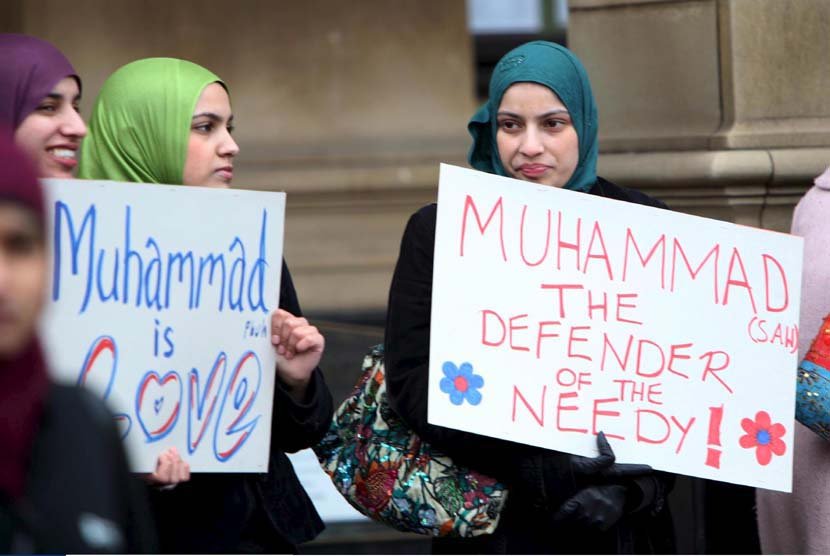 Muhammad
Pbuh
is
LOVE
MUHAMMAD
(SAW)
THE
DEFENDER
OF THE
NEEDY!